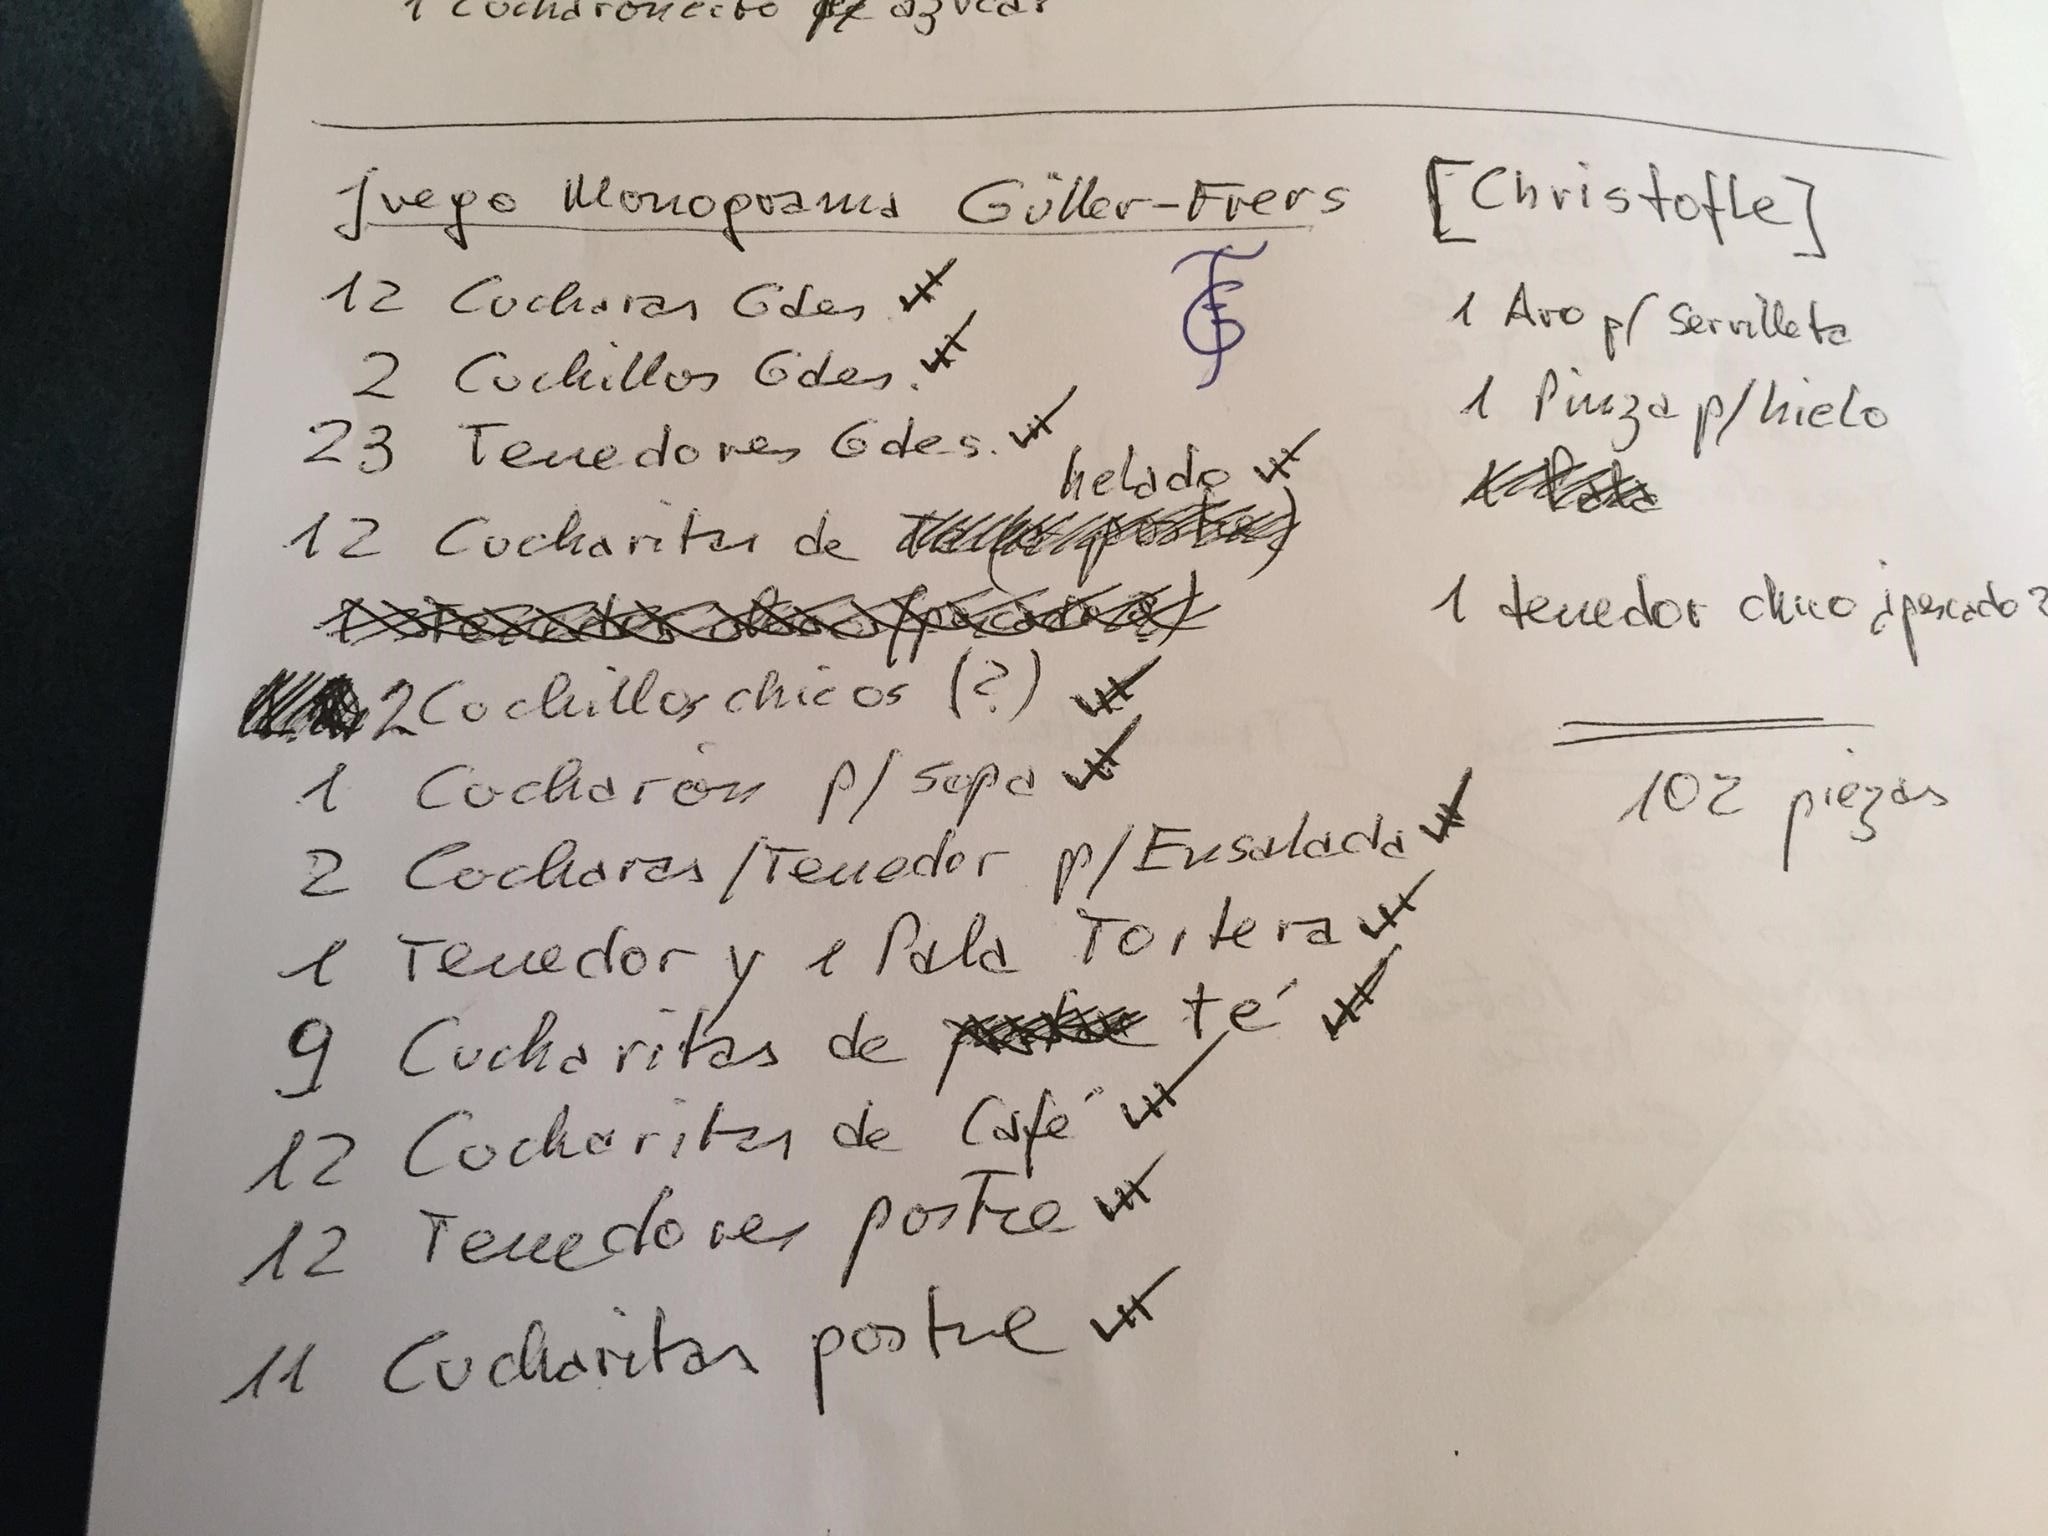 1 Cucharoncito p/ azucar
Juego Monograma Güller-Frers [Christofle]
12 Cucharas Gdes.
2 Cuchillos Gdes.
23 Tenedores Gdes.
helado
12 Cucharitas de
2 Cuchillos chicos (?)
1 Cucharón p/ sopa
2 Cucharas/Tenedor p/Ensalada
1 Tenedor y 1 Pala Tortera
9 Cucharitas de té
12 Cucharitas de Café
12 Tenedores postre
11 Cucharitas postre
1 Aro p/ servilleta
1 Pinza p/hielo
1 tenedor chico ¿pescado?
102 piezas